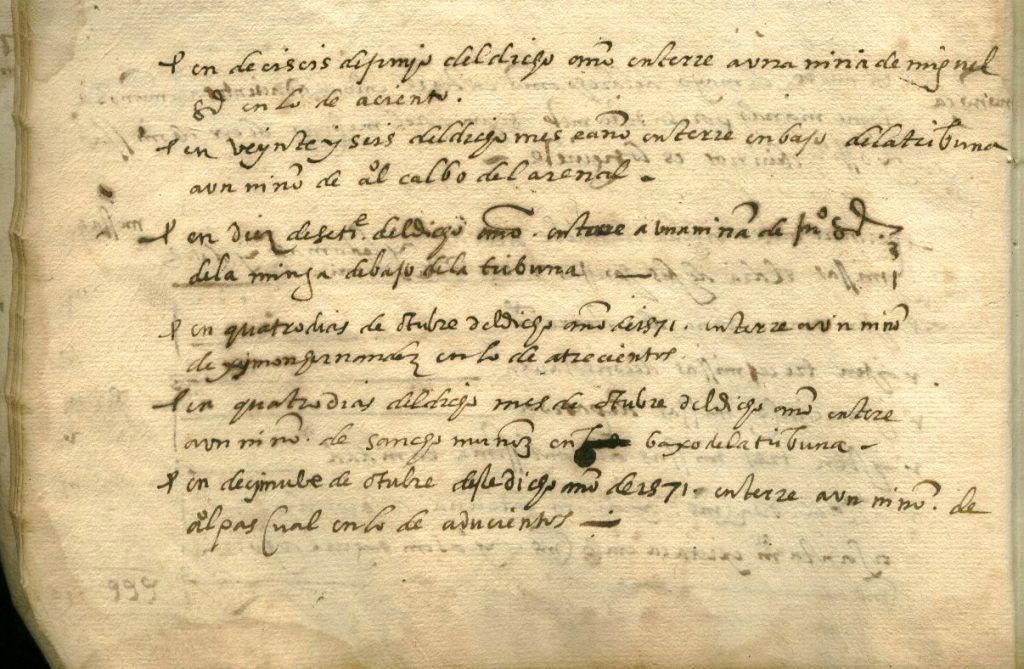 en deciseis de junyo del dicho año enterre a una niña de miguel
gd en lo de aciento.
en veynte y seis del dicho mes e año enterre en bajo de la tribuna
a un niño de aºl calbo del arenal
en diez de setiᵉ. del dicho año. enterre a una niña de juº gd
de la minga debajo de la tribuna
en quatro dias de otubre del dicho año de 1571. enterre a un niño
de ximon hernandez en lo de a trecientos
en quatro dias del dicho mes de otubre del dicho año entere
a un niño. de sancho muñoz en baxo de la tribuna
en decinuebe de otubre deste dicho año de 1571. enterre a un niño. de
aºl pascual en lo de a ducientos